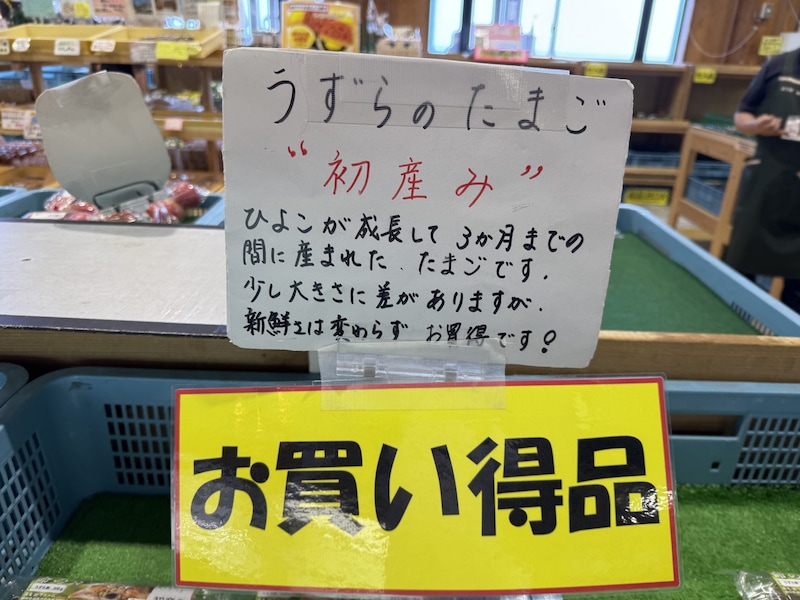 うずらのたまご
"初産み"
ひよこが成長して 3か月までの
間に産まれた、たまごです。
少し大きさに差がありますが、
新鮮さは変わらず お買得です!
お買い得品